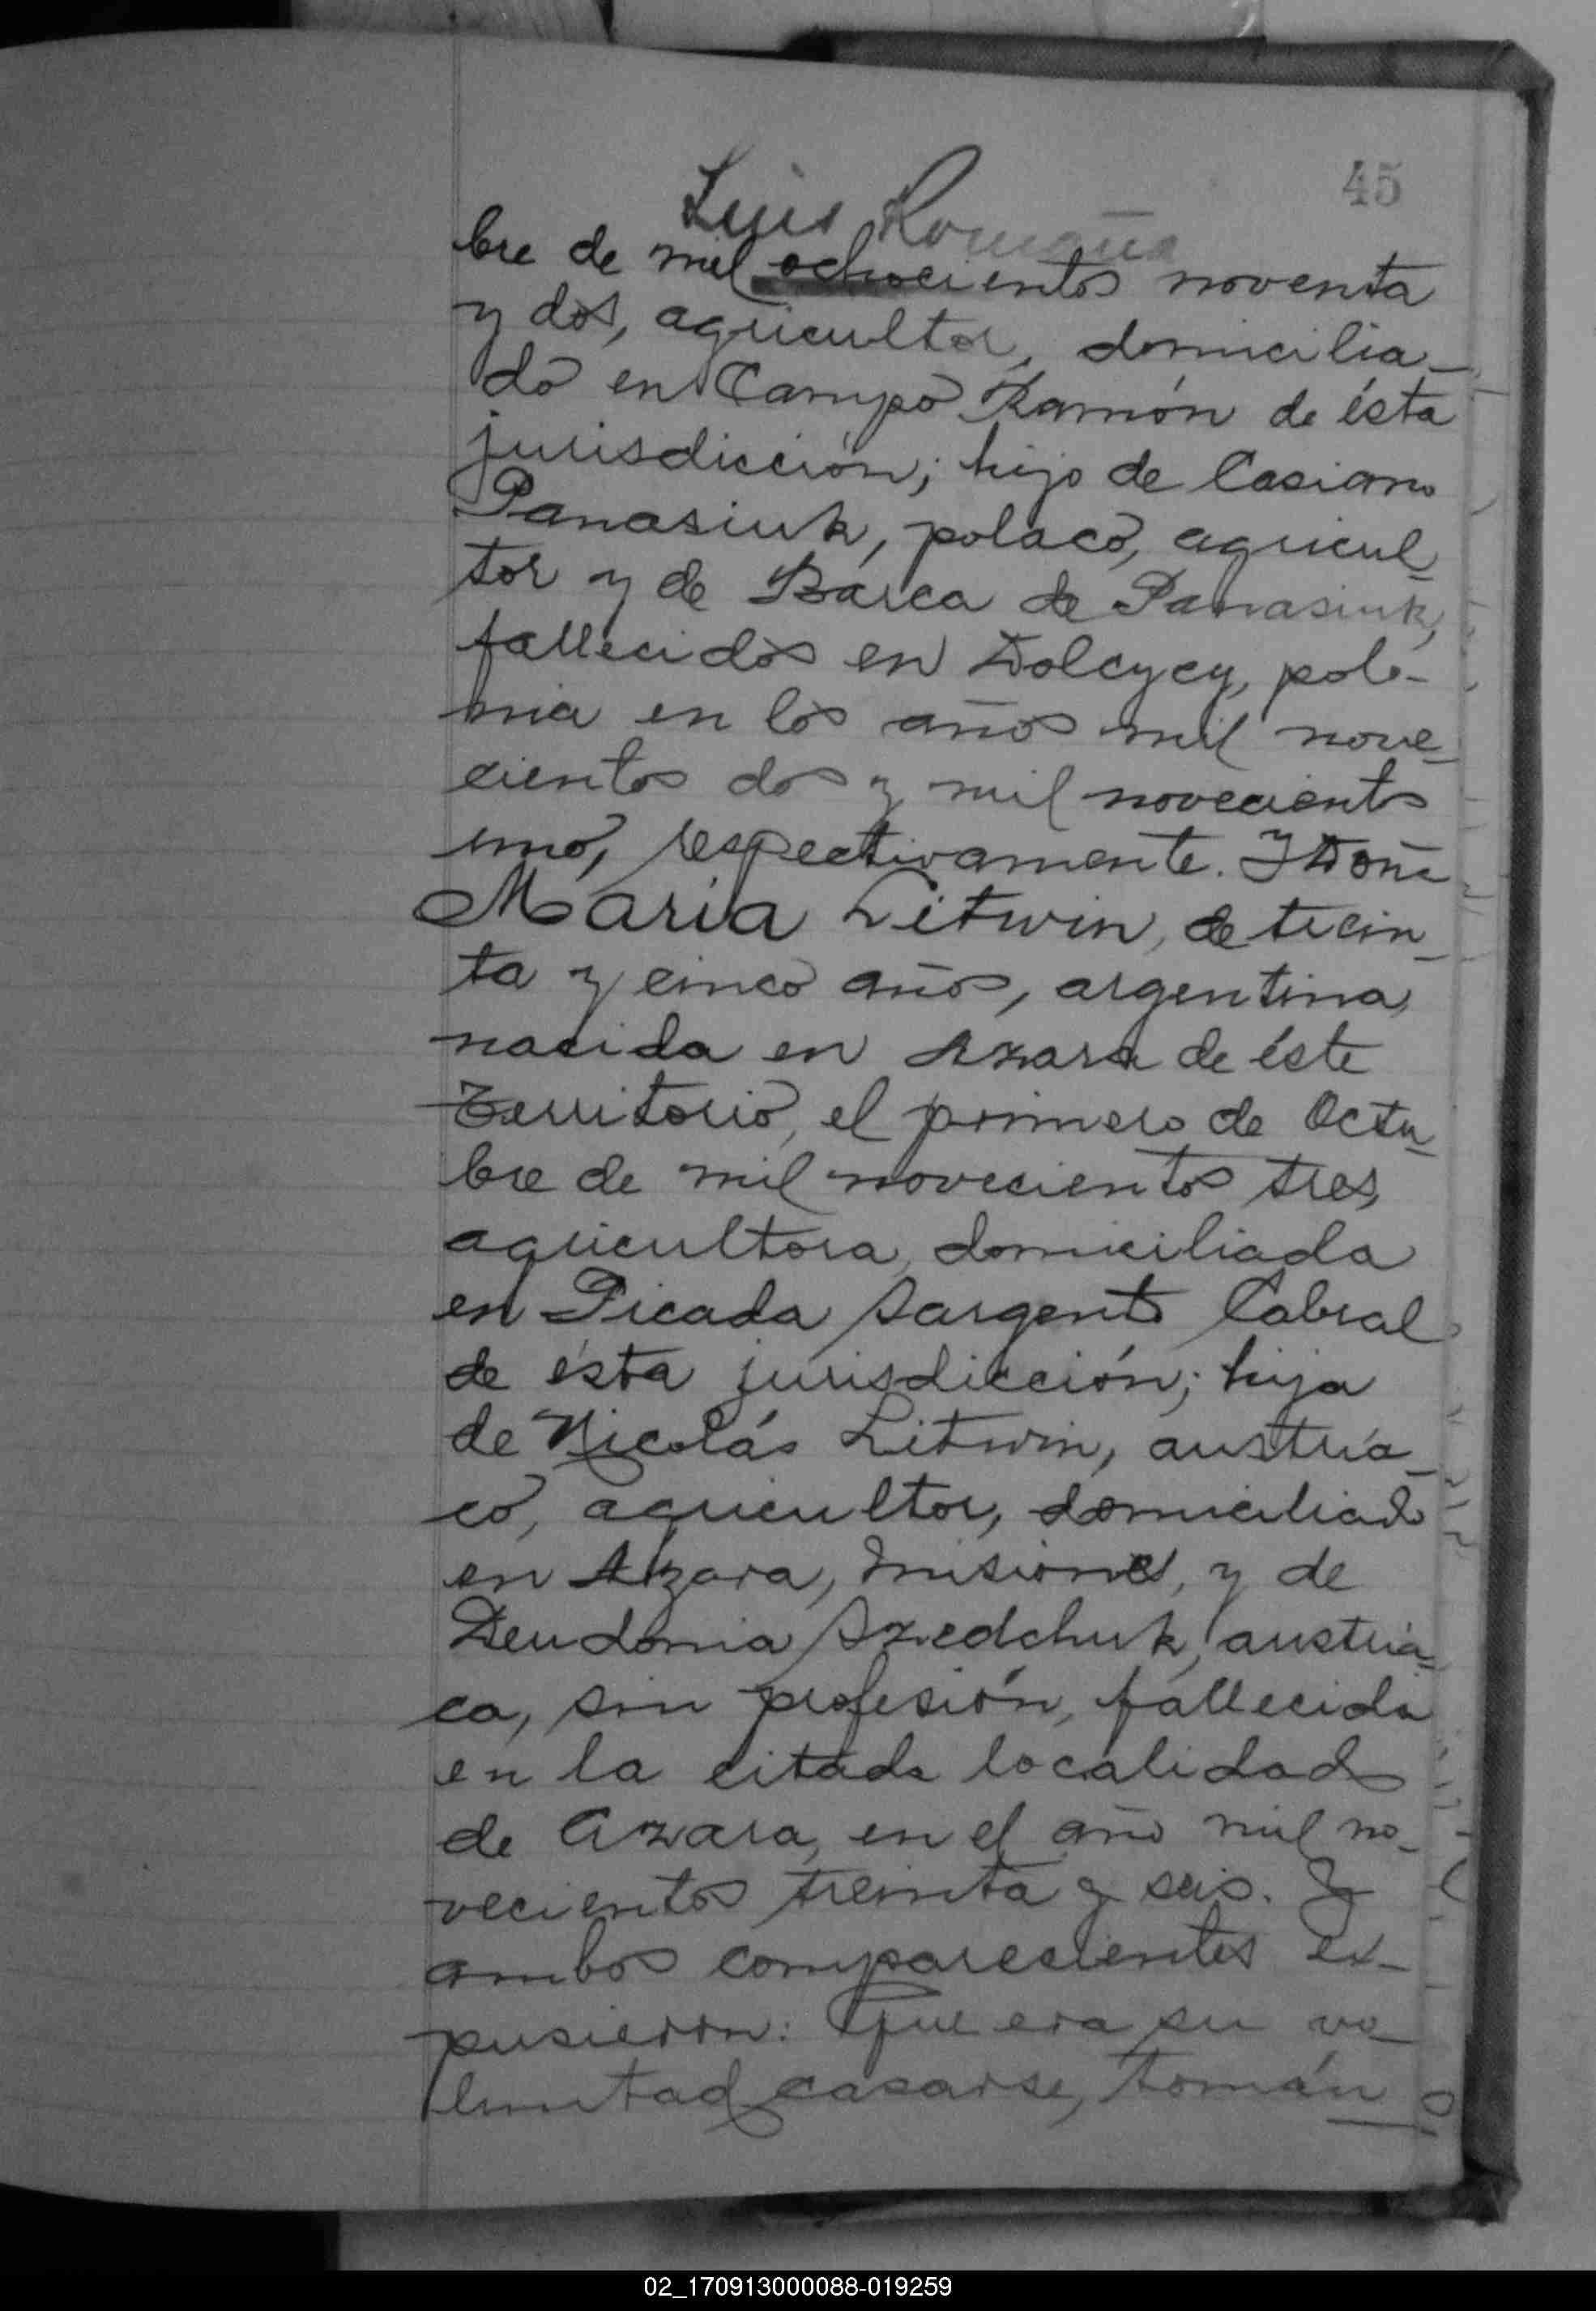 45
Luis Romaña
bre de mil ochocientos noventa
y dos, agricultor, domicilia-
do en Campo Ramón de ésta
jurisdicción; hijo de Casiano
Panasiuk, polaco, agricul-
tor y de Bárca de Panasiuk,
fallecidos en Dolcycy, polo-
nia en los años mil nove-
cientos dos y mil novecientos
uno, respectivamente. Y Doña
María Litwin, de trein-
ta y cinco años, argentina,
nacida en Azara de éste
Territorio, el primero de Octu-
bre de mil novecientos tres,
agricultora, domiciliada
en Picada Sargento Cabral
de ésta jurisdicción; hija
de Nicolás Litwin, austría-
co, agricultor, domiciliado
en Azara, Misiones, y de
Deudonia Szedchuk, austría-
ca, sin profesión, fallecida
en la citada localidad
de Azara, en el año mil no-
vecientos treinta y seis. Y
ambos comparecientes ex-
pusieron: Que era su vo-
luntad casarse, tomán-
02_170913000088-019259